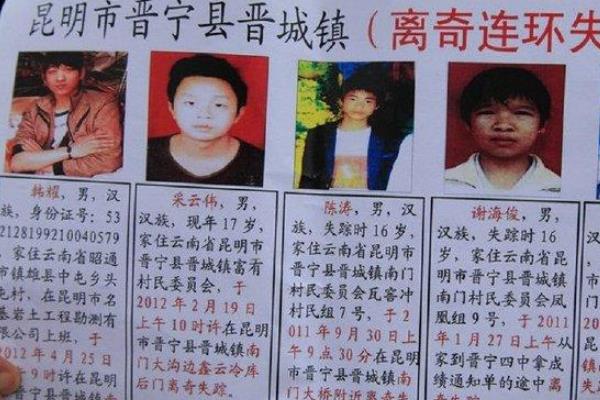 昆明市晋宁县晋城镇（离奇连环失
韩耀，男，汉
族，身份证号：53
2128199210040579
家住云南省昭通
市镇雄县中屯乡头
屯村，在昆明市名
基岩土工程勘测有
限公司上班，于
2012年4月25日
午9时许在昆明
晋宁县晋城镇
采云伟，男，
汉族，现年17岁，
家住云南省昆明市
晋宁县晋城镇富有
村民委员会，于
2012年2月19日
上午10时许在昆明
市晋宁县晋城镇南
门大沟边鑫云冷库
后门离奇失踪。
陈涛，男，汉
族，失踪时16岁，
家住云南省昆明市
晋宁县晋城镇南门
村民委员会瓦窑冲
村民组7号，于2
011年9月30日上
午9点30分在昆明
市晋宁县晋城镇南
门大桥附近离奇失
谢海俊，男，
汉族，失踪时16
岁，家住云南省昆
明市晋宁县晋城镇
南门村民委员会凤
凰组9号，于2011
年1月27日上午从
家到晋宁四中拿成
绩通知单的途中离
奇失踪